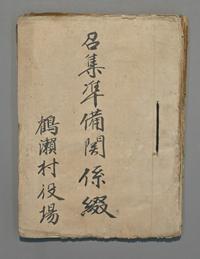 召集準備関係綴
鶴瀬村役場